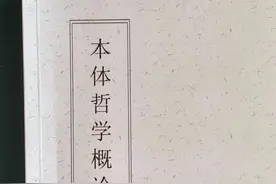 本体哲学概论